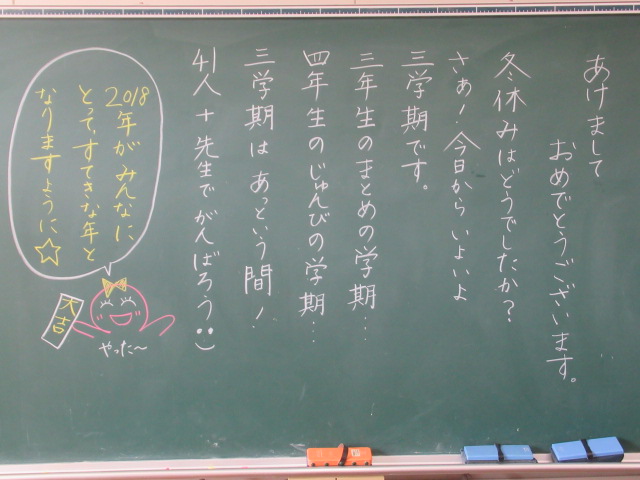 あけまして
おめでとうございます。
冬休みはどうでしたか？
さぁ！今日からいよいよ
三学期です。
三年生のまとめの学期…
四年生のじゅんびの学期…
三学期はあっという間！
41人＋先生でがんばろう:)
2018年がみんなに
とってすてきな年と
なりますように☆
大吉
やった〜